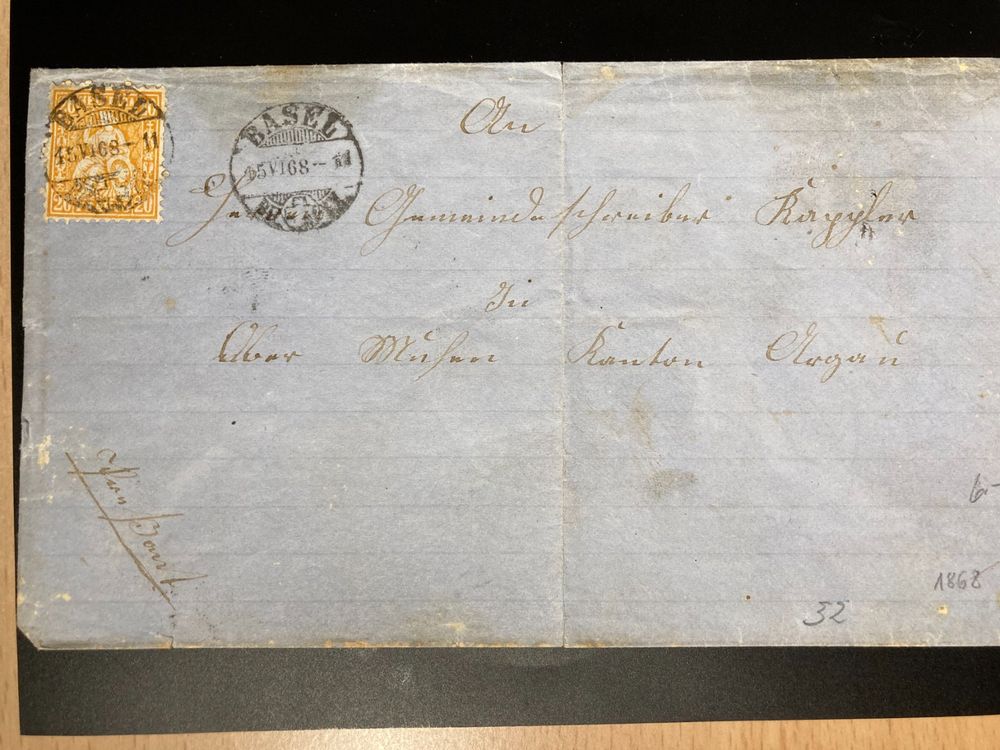 BASEL
15 VI 68 – 11
20 20
BASEL
15 VI 68 – 11
An
Gemeindeschreiber Kappler
In
Ober Muhen Kanton Argau
6-
1868
32